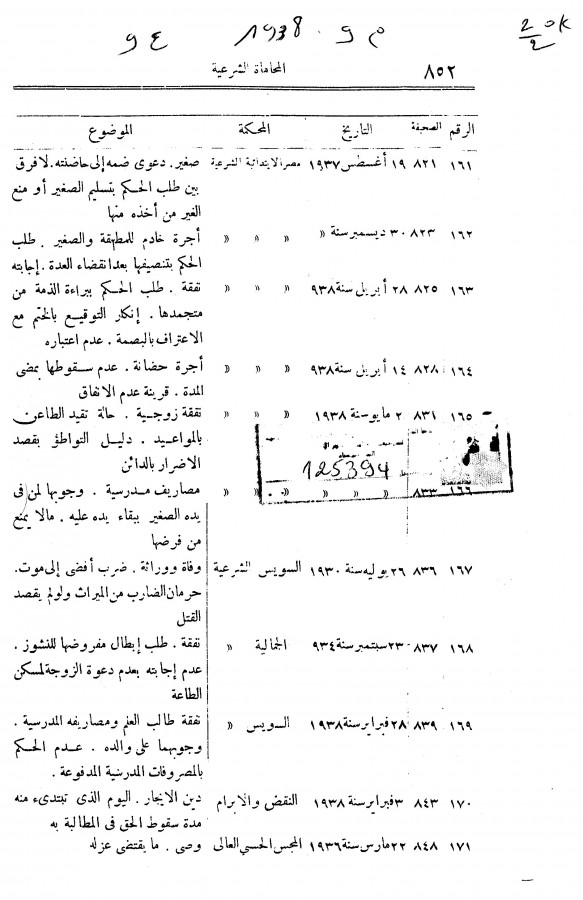 ٩٤ ١٩٣٨ ٩م
2 OK
2
٨٥٢ المحاماة الشرعية
الرقم الصحيفة التاريخ المحكمة الموضوع
١٦١ ٨٢١ ١٩ أغسطس ١٩٣٧ مصر الابتدائية الشرعية صغير. دعوى ضمه إلى حاضنته. لا فرق
بين طلب الحكم بتسليم الصغير أو منع
الغير من أخذه منها
١٦٢ ٨٢٣ ٣٠ ديسمبر سنة » » » » أجرة خادم للمطلقة والصغير. طلب
الحكم بتنصيفها بعد انقضاء العدة. إجابته
١٦٣ ٨٢٥ ٢٨ أبريل سنة ٩٣٨ » » » نفقة. طلب الحكم ببراءة الذمة من
متجمدها. إنكار التوقيع بالختم مع
الاعتراف بالبصمة. عدم اعتباره
١٦٤ ٨٢٨ ١٤ أبريل سنة ٩٣٨ » » » أجرة حضانة. عدم سقوطها بمضى
المدة. قرينة عدم الانفاق
١٦٥ ٨٣١ ٢ مايو سنة ١٩٣٨ » » » نفقة زوجية. حالة تقيد الطاعن
بالمواعيد. دليل التواطؤ بقصد
الاضرار بالدائن
125394
١٦٦ ٨٣٣ » » » » » مصاريف مدرسية. وجوبها لمن فى
يده الصغير ببقاء يده عليه. مالا يمنع
من فرضها
١٦٧ ٨٣٦ ٢٦ يوليه سنة ١٩٣٠ السويس الشرعية وفاة ووراثة. ضرب أفضى إلى موت.
حرمان الضارب من الميراث ولو لم يقصد
القتل
١٦٨ ٨٣٧ ٢٣ سبتمبر سنة ٩٣٤ الجمالية » نفقة. طلب إبطال مفروضها للنشوز.
عدم إجابته بعدم دعوة الزوجة لمسكن
الطاعة
١٦٩ ٨٣٩ ٢٨ فبراير سنة ١٩٣٨ السويس » نفقة طالب العلم ومصاريفه المدرسية.
وجوبهما على والده. عدم الحكم
بالمصروفات المدرسية المدفوعة.
١٧٠ ٨٤٣ ٣ فبراير سنة ١٩٣٨ النقض والابرام دين الايجار. اليوم الذى تبتدىء منه
مدة سقوط الحق فى المطالبة به
١٧١ ٨٤٨ ٢٢ مارس سنة ١٩٣٦ المجس الحسبي العالى وصى. ما يقتضى عزله